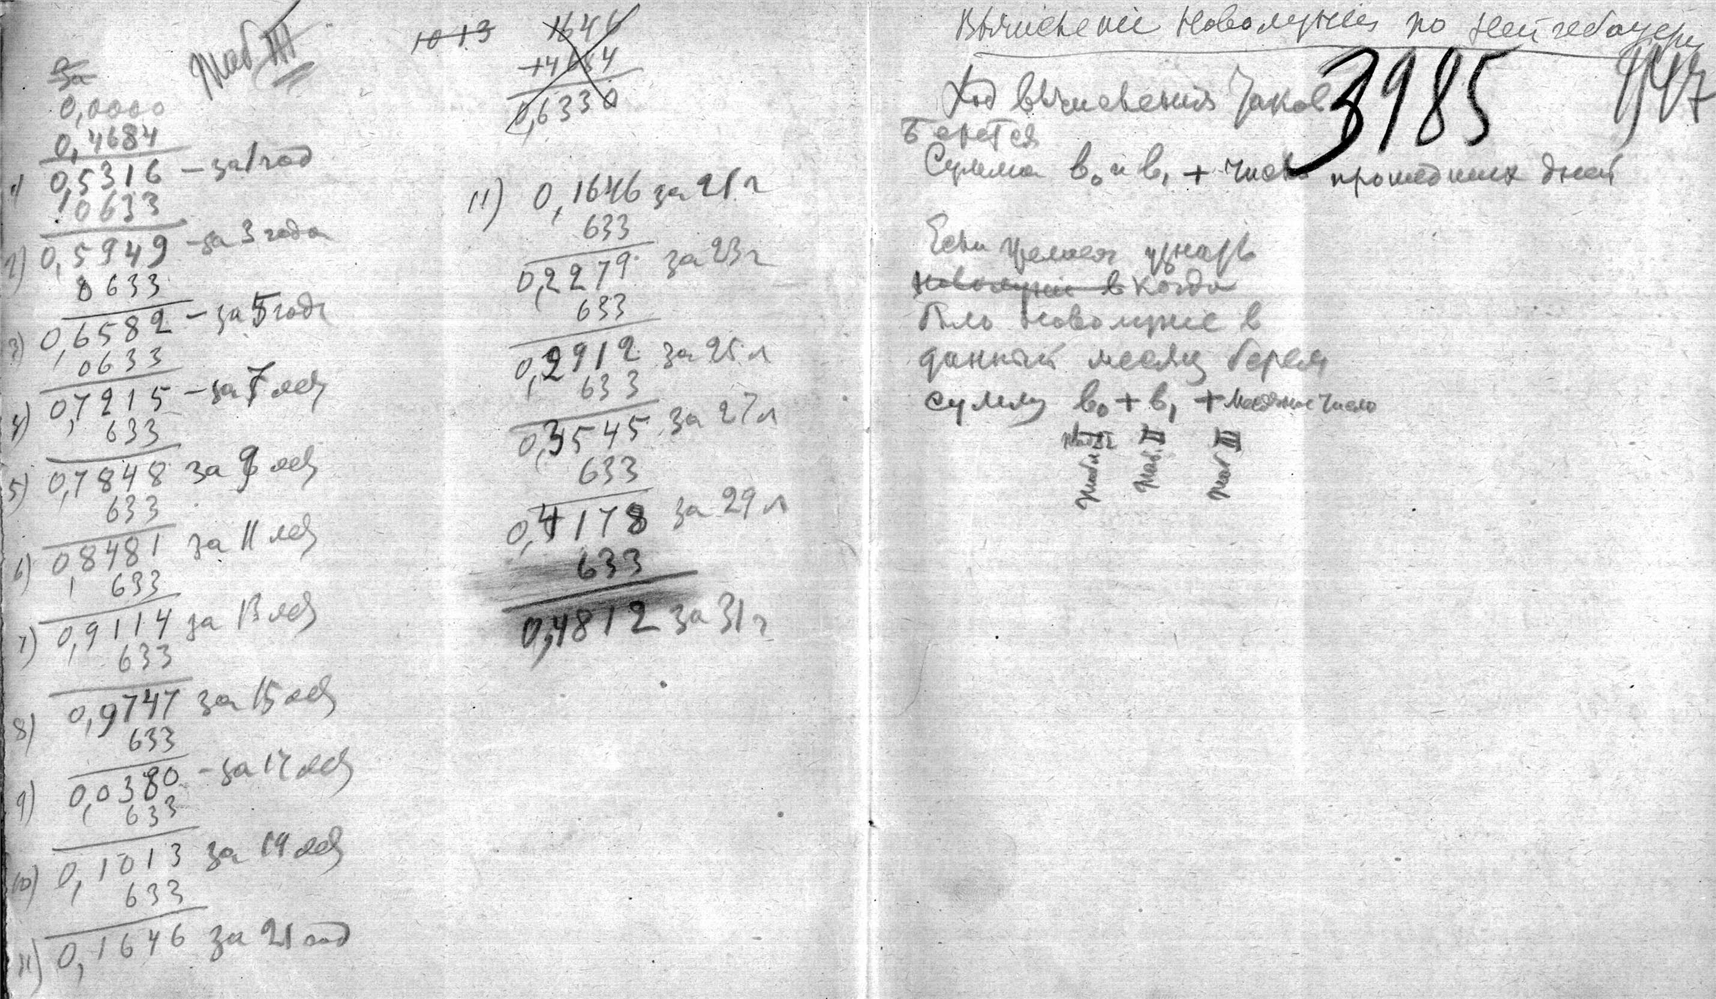 Таб III
За
0,0000
0,4684
1) 0,5316 – за 1 год
0633
2) 0,5949 – за 3 года
0633
3) 0,6582 – за 5 годг
0633
4) 0,7215 – за 7 лет
633
5) 0,7848 за 9 лет
633
6) 0,8481 за 11 лет
633
7) 0,9114 за 13 лет
633
8) 0,9747 за 15 лет
633
9) 0,0380 – за 17 лет
633
10) 0,1013 за 19 лет
633
11) 0,1646 за 21 год
1013
1646
+4684
0,6330
11) 0,1646 за 21 г
633
0,2279 за 23 г
633
0,2912 за 25 л
633
0,3545 за 27 л
633
0,4178 за 29 л
633
0,4812 за 31 г
Вычислениј новолуниј по Нейгебауеру
3985
947
Ход вычисления таков
Берется
Сумма b₀ и b₁ + число прошедших дней
Если желаем узнать
новолуние в когда
было новолуние в
данный месяц берем
сумму b₀ + b₁ + месячное число
Табл I Таб. II Таб III